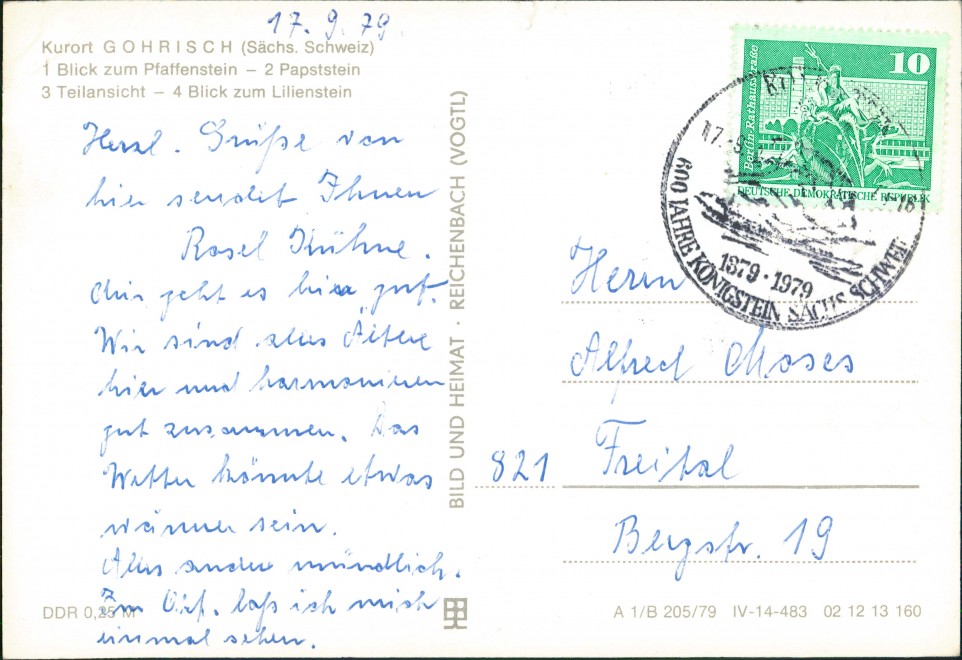 17. 9. 79
Kurort GOHRISCH (Sächs. Schweiz)
1 Blick zum Pfaffenstein – 2 Papststein
3 Teilansicht – 4 Blick zum Lilienstein
Herzl. Grüße von
hier sendet Ihnen
Rosel Kühne.
Mir geht es hier gut.
Wir sind alles Ältere
hier und harmonieren
gut zusammen. Das
Wetter könnte etwas
wärmer sein.
Alles andere mündlich.
Im laß ich mich
einmal sehen.
DDR 0,25 M
BILD UND HEIMAT · REICHENBACH (VOGTL)
10
Berlin-Rathausstraße
DEUTSCHE DEMOKRATISCHE REPUBLIK
17.-9.
1379 · 1979
600 JAHRE KÖNIGSTEIN SÄCHS. SCHWEIZ
Herrn
Alfred Moses
821 Freital
Bergstr. 19
A 1/B 205/79 IV-14-483 02 12 13 160